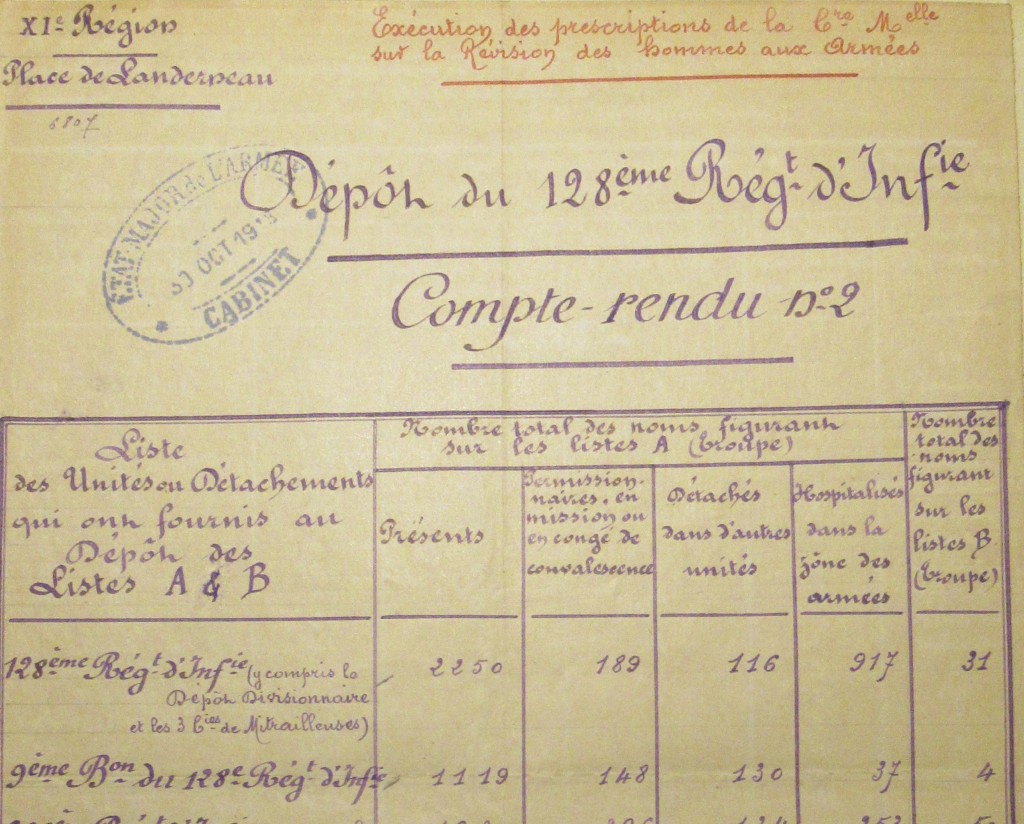 XIe Région
Place de Landerneau
6807
Exécution des prescriptions de la Cre Melle
sur la Révision des hommes aux Armées
ETAT-MAJOR de L'ARMÉE
30 OCT 191
CABINET
Dépôt du 128ème Régt d'Infie
Compte-rendu no 2
Liste
des Unités ou Détachements
qui ont fournis au
Dépôt des
Listes A & B
Nombre total des noms figurant
sur les listes A (Troupe)
Présents
Permission-
naires, en
mission ou
en congé de
convalescence
Détachés
dans d'autres
unités
Hospitalisés
dans la
zône des
armées
Nombre
total des
noms
figurant
sur les
listes B
(Troupe)
128ème Régt d'Infie (y compris le 2250 189 116 917 31
Dépôt Divisionnaire
et les 3 Cies de Mitrailleuses)
9ème Bon du 128e Régt d'Infie 1119 148 130 37 4